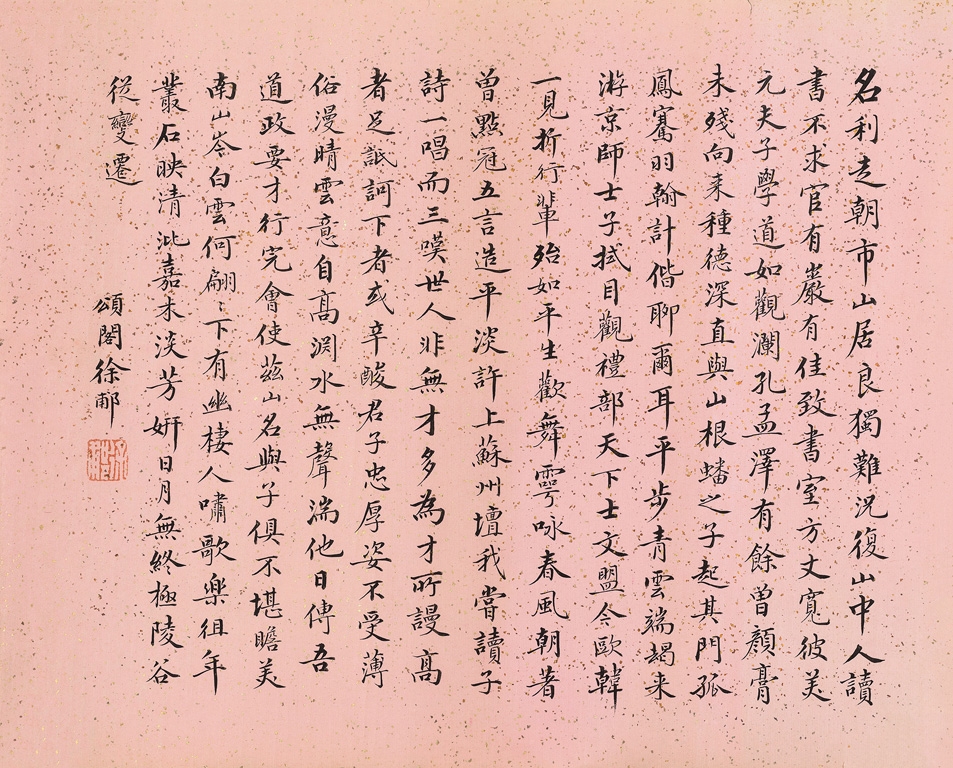 名利走朝市山居良獨難況復山中人讀
書不求官有巖有佳致書室方丈寬彼美
元夫子學道如觀瀾孔孟澤有餘曾顏膏
未殘向来種德深直與山根蟠之子起其門孤
鳳騫羽翰計偕聊爾耳平步青雲端朅来
游京師士子拭目觀禮部天下士文盟今歐韓
一見折行輩殆如平生歡舞雩咏春風朝著
曾點冠五言造平淡許上蘇州壇我嘗讀子
詩一唱而三嘆世人非無才多為才所謾高
者足詆訶下者或辛酸君子忠厚姿不受薄
俗漫晴雲意自高淵水無聲湍他日傳吾
道政要才行完會使茲山名與子俱不堪瞻美
南山岑白雲何翩ミ下有幽棲人嘯歌樂徂年
叢石映清泚嘉木淡芳妍日月無終極陵谷
從變遷
頌閣徐郙